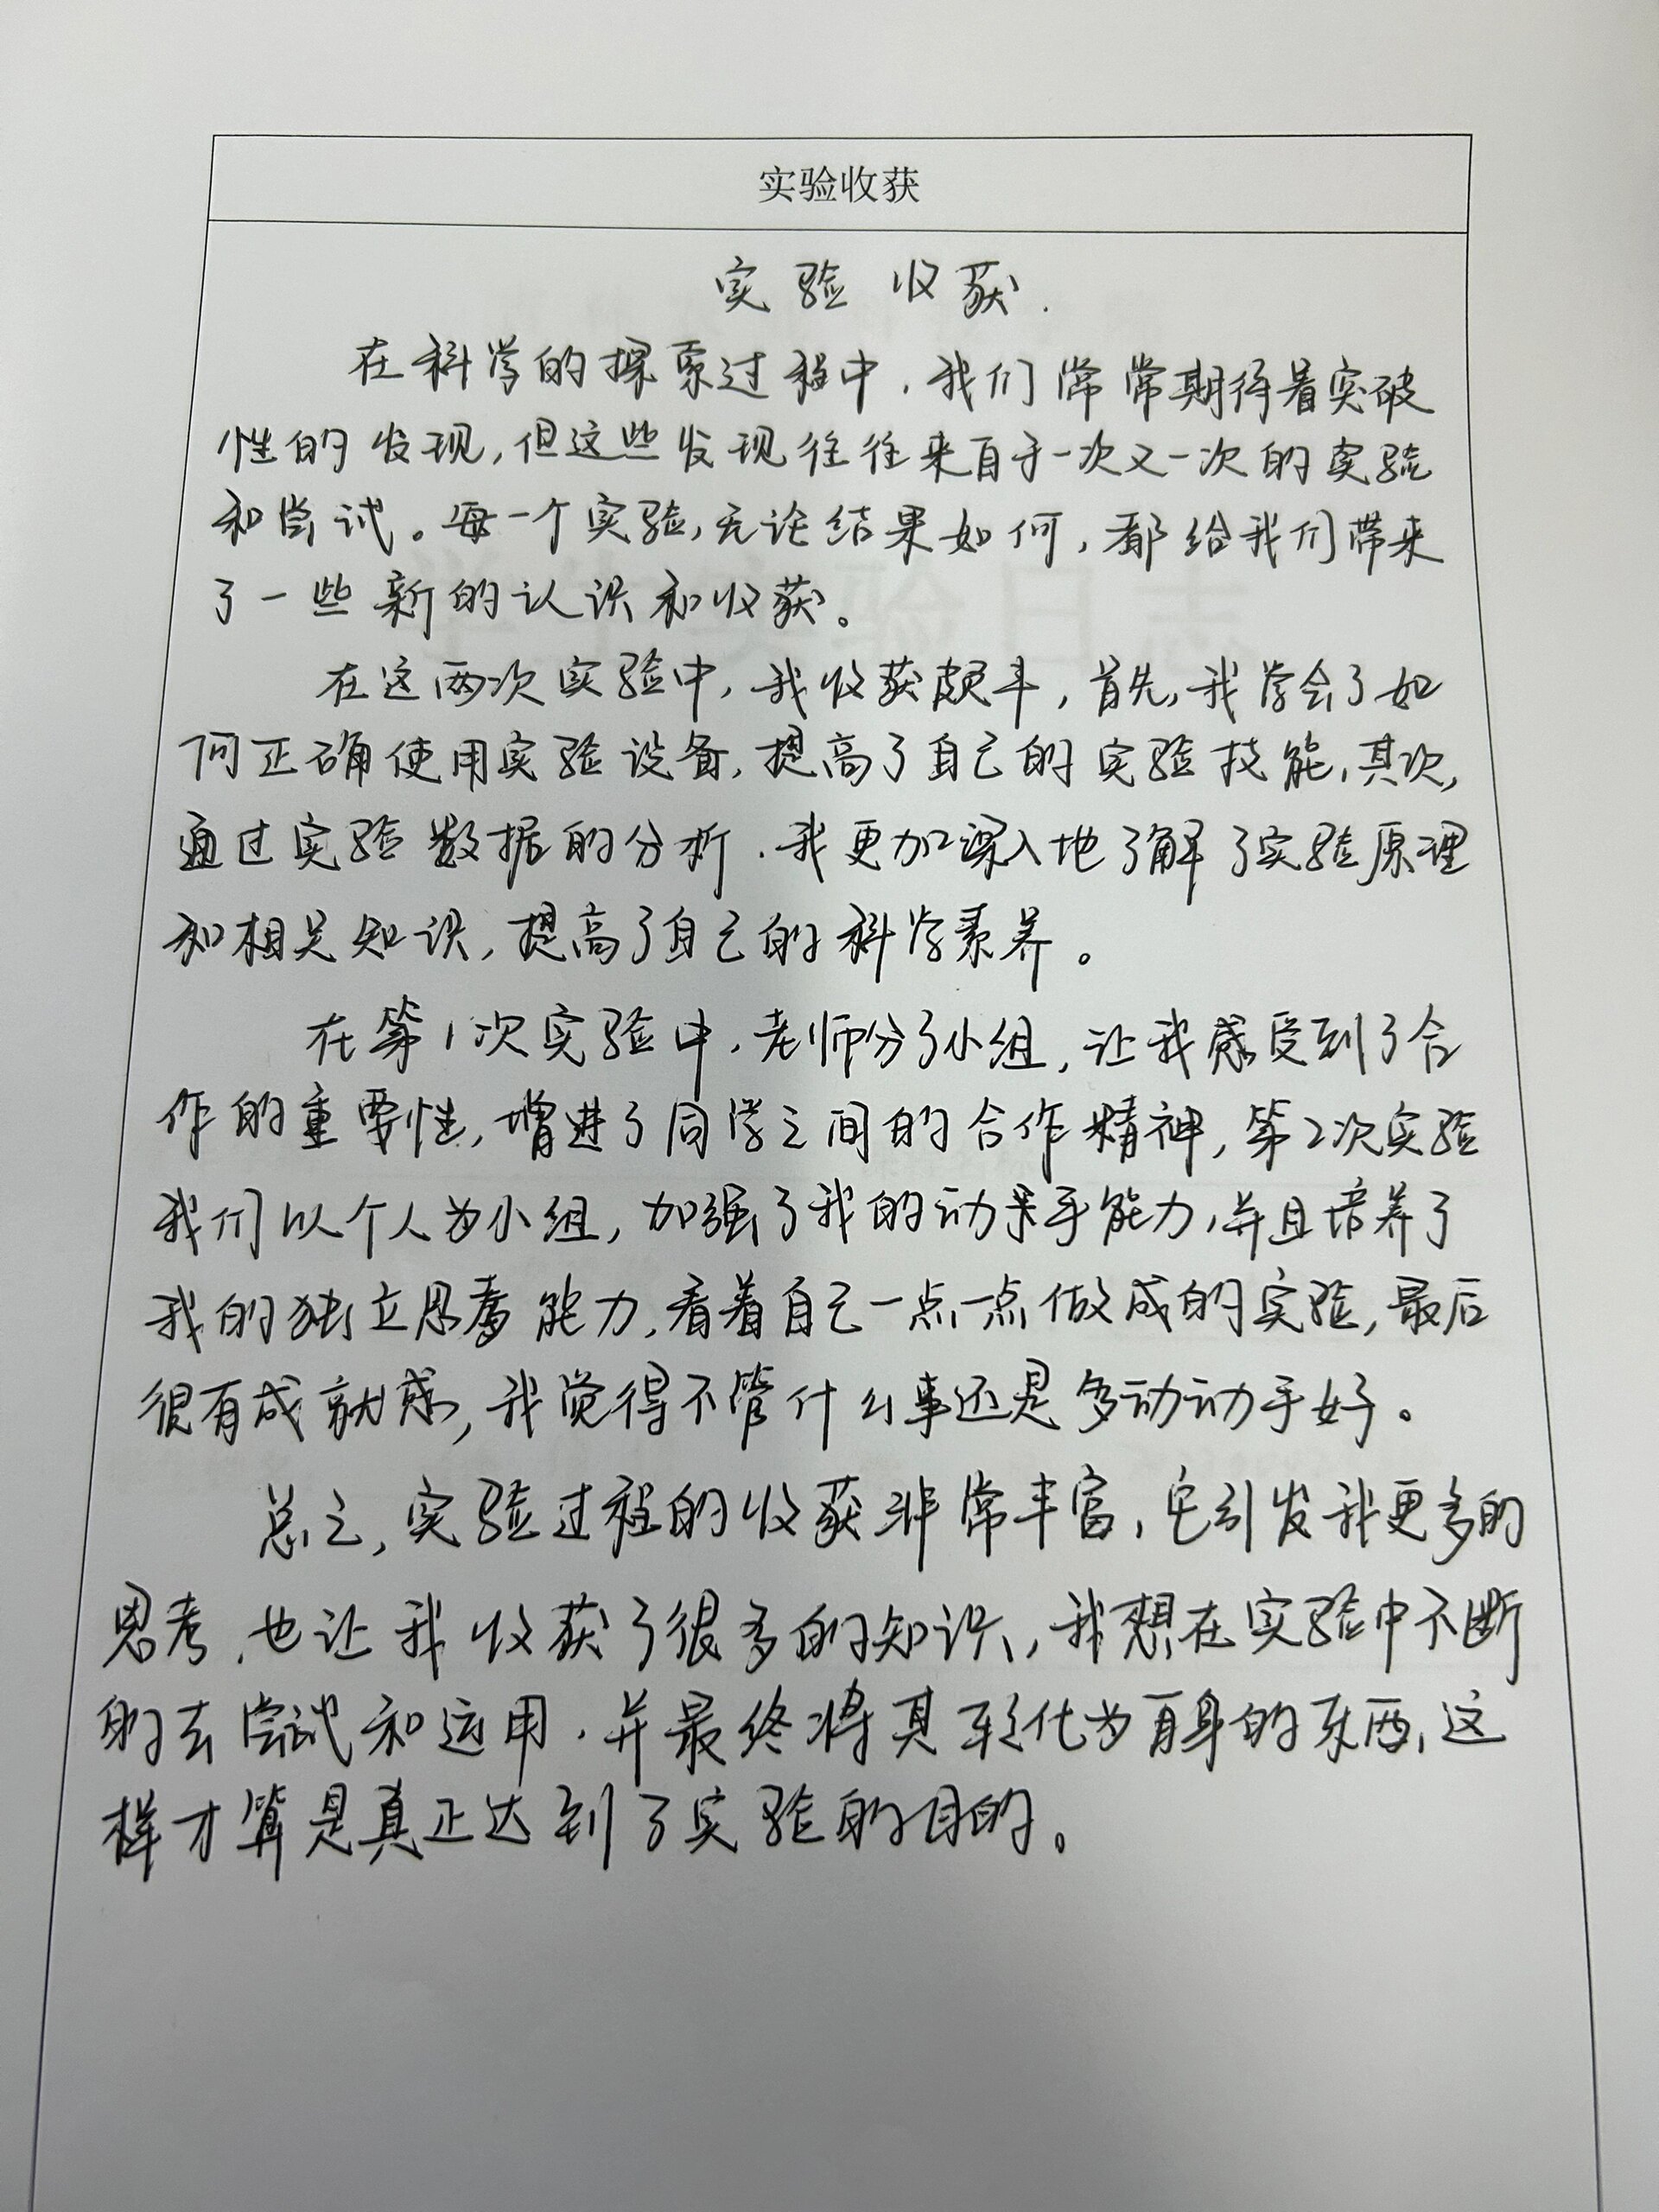 实验收获
实验收获.
在科学的探索过程中，我们常常期待着突破
性的发现，但这些发现往往来自于一次又一次的实验
和尝试。每一个实验，无论结果如何，都给我们带来
了一些新的认识和收获。
在这两次实验中，我收获颇丰，首先，我学会了如
何正确使用实验设备，提高了自己的实验技能，其次，
通过实验数据的分析，我更加深入地了解了实验原理
和相关知识，提高了自己的科学素养。
在第1次实验中，老师分了小组，让我感受到了合
作的重要性，增进了同学之间的合作精神，第2次实验
我们以个人为小组，加强了我的动手能力，并且培养了
我的独立思考能力，看着自己一点一点做成的实验，最后
很有成就感，我觉得不管什么事还是多动动手好。
总之，实验过程的收获非常丰富，它引发我更多的
思考，也让我收获了很多的知识，我想在实验中不断
的去尝试和运用，并最终将其形化为自身的东西，这
样才算是真正达到了实验的目的。